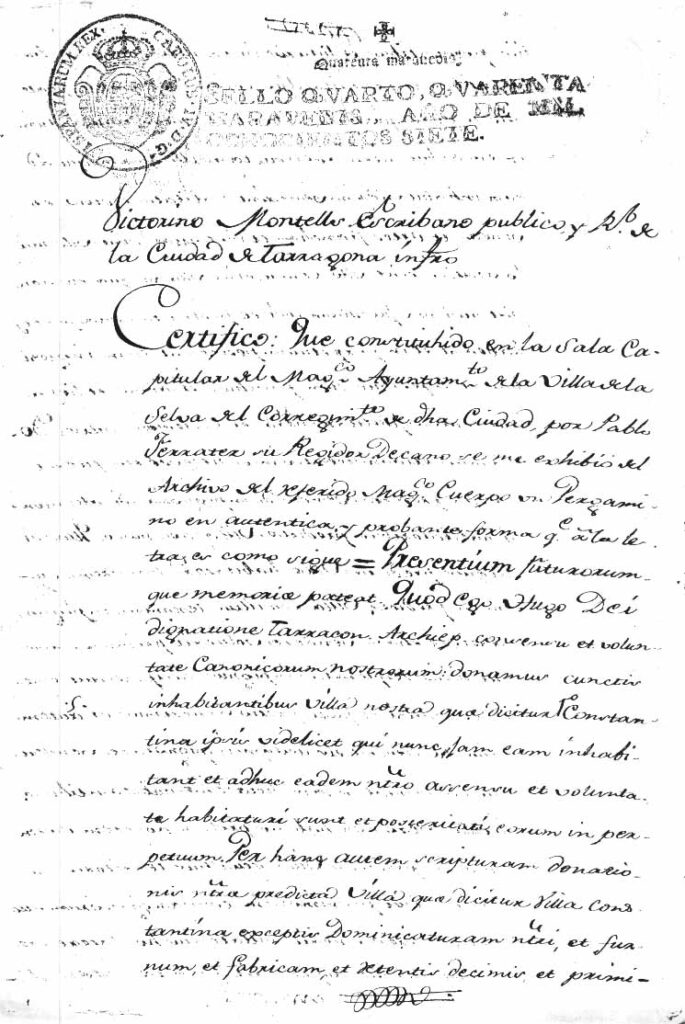 HISPANIARUM REX. CAROLUS IV D. G.
Quarenta maravedis
SELLO QVARTO, QVARENTA
MARAVEDIS, AÑO DE MIL
OCHOCIENTOS SIETE.
Victorino Montells Escribano publico, y Rl. de
la Ciudad de Tarragona infro
Certifico: Que constituhido en la Sala Ca-
pitular del Magco. Ayuntamto. de la Villa de la
Selva del Corregimto. de dha Ciudad, por Pablo
Ferrater su Regidor Decano se me exhibió del
Archivo del referido Magco. Cuerpo un Pergami-
no en autentica, y probante forma qe. á la le-
tra es como sigue = Presentium futurorum-
que memoriæ pateat Quod Ego Hugo Dei
dignatione Tarracon. Archiep. consensu et volun-
tate Canonicorum nostrorum donamus cunctis
inhabitantibus Villa nostra quæ dicitur Constan-
tina ipsis videlicet qui nunc jam eam inhabi-
tant et adhuc eadem ntro assensu et volunta-
te habitaturi sunt et posteritati eorum in per-
petuum. Per hanc autem scripturam donatio-
nis ntra predicta Villa quæ dicitur Villa Cons-
tantina exceptis Dominicaturam ntri, et fur-
num, et fabricam, et retentis decimis et primi-